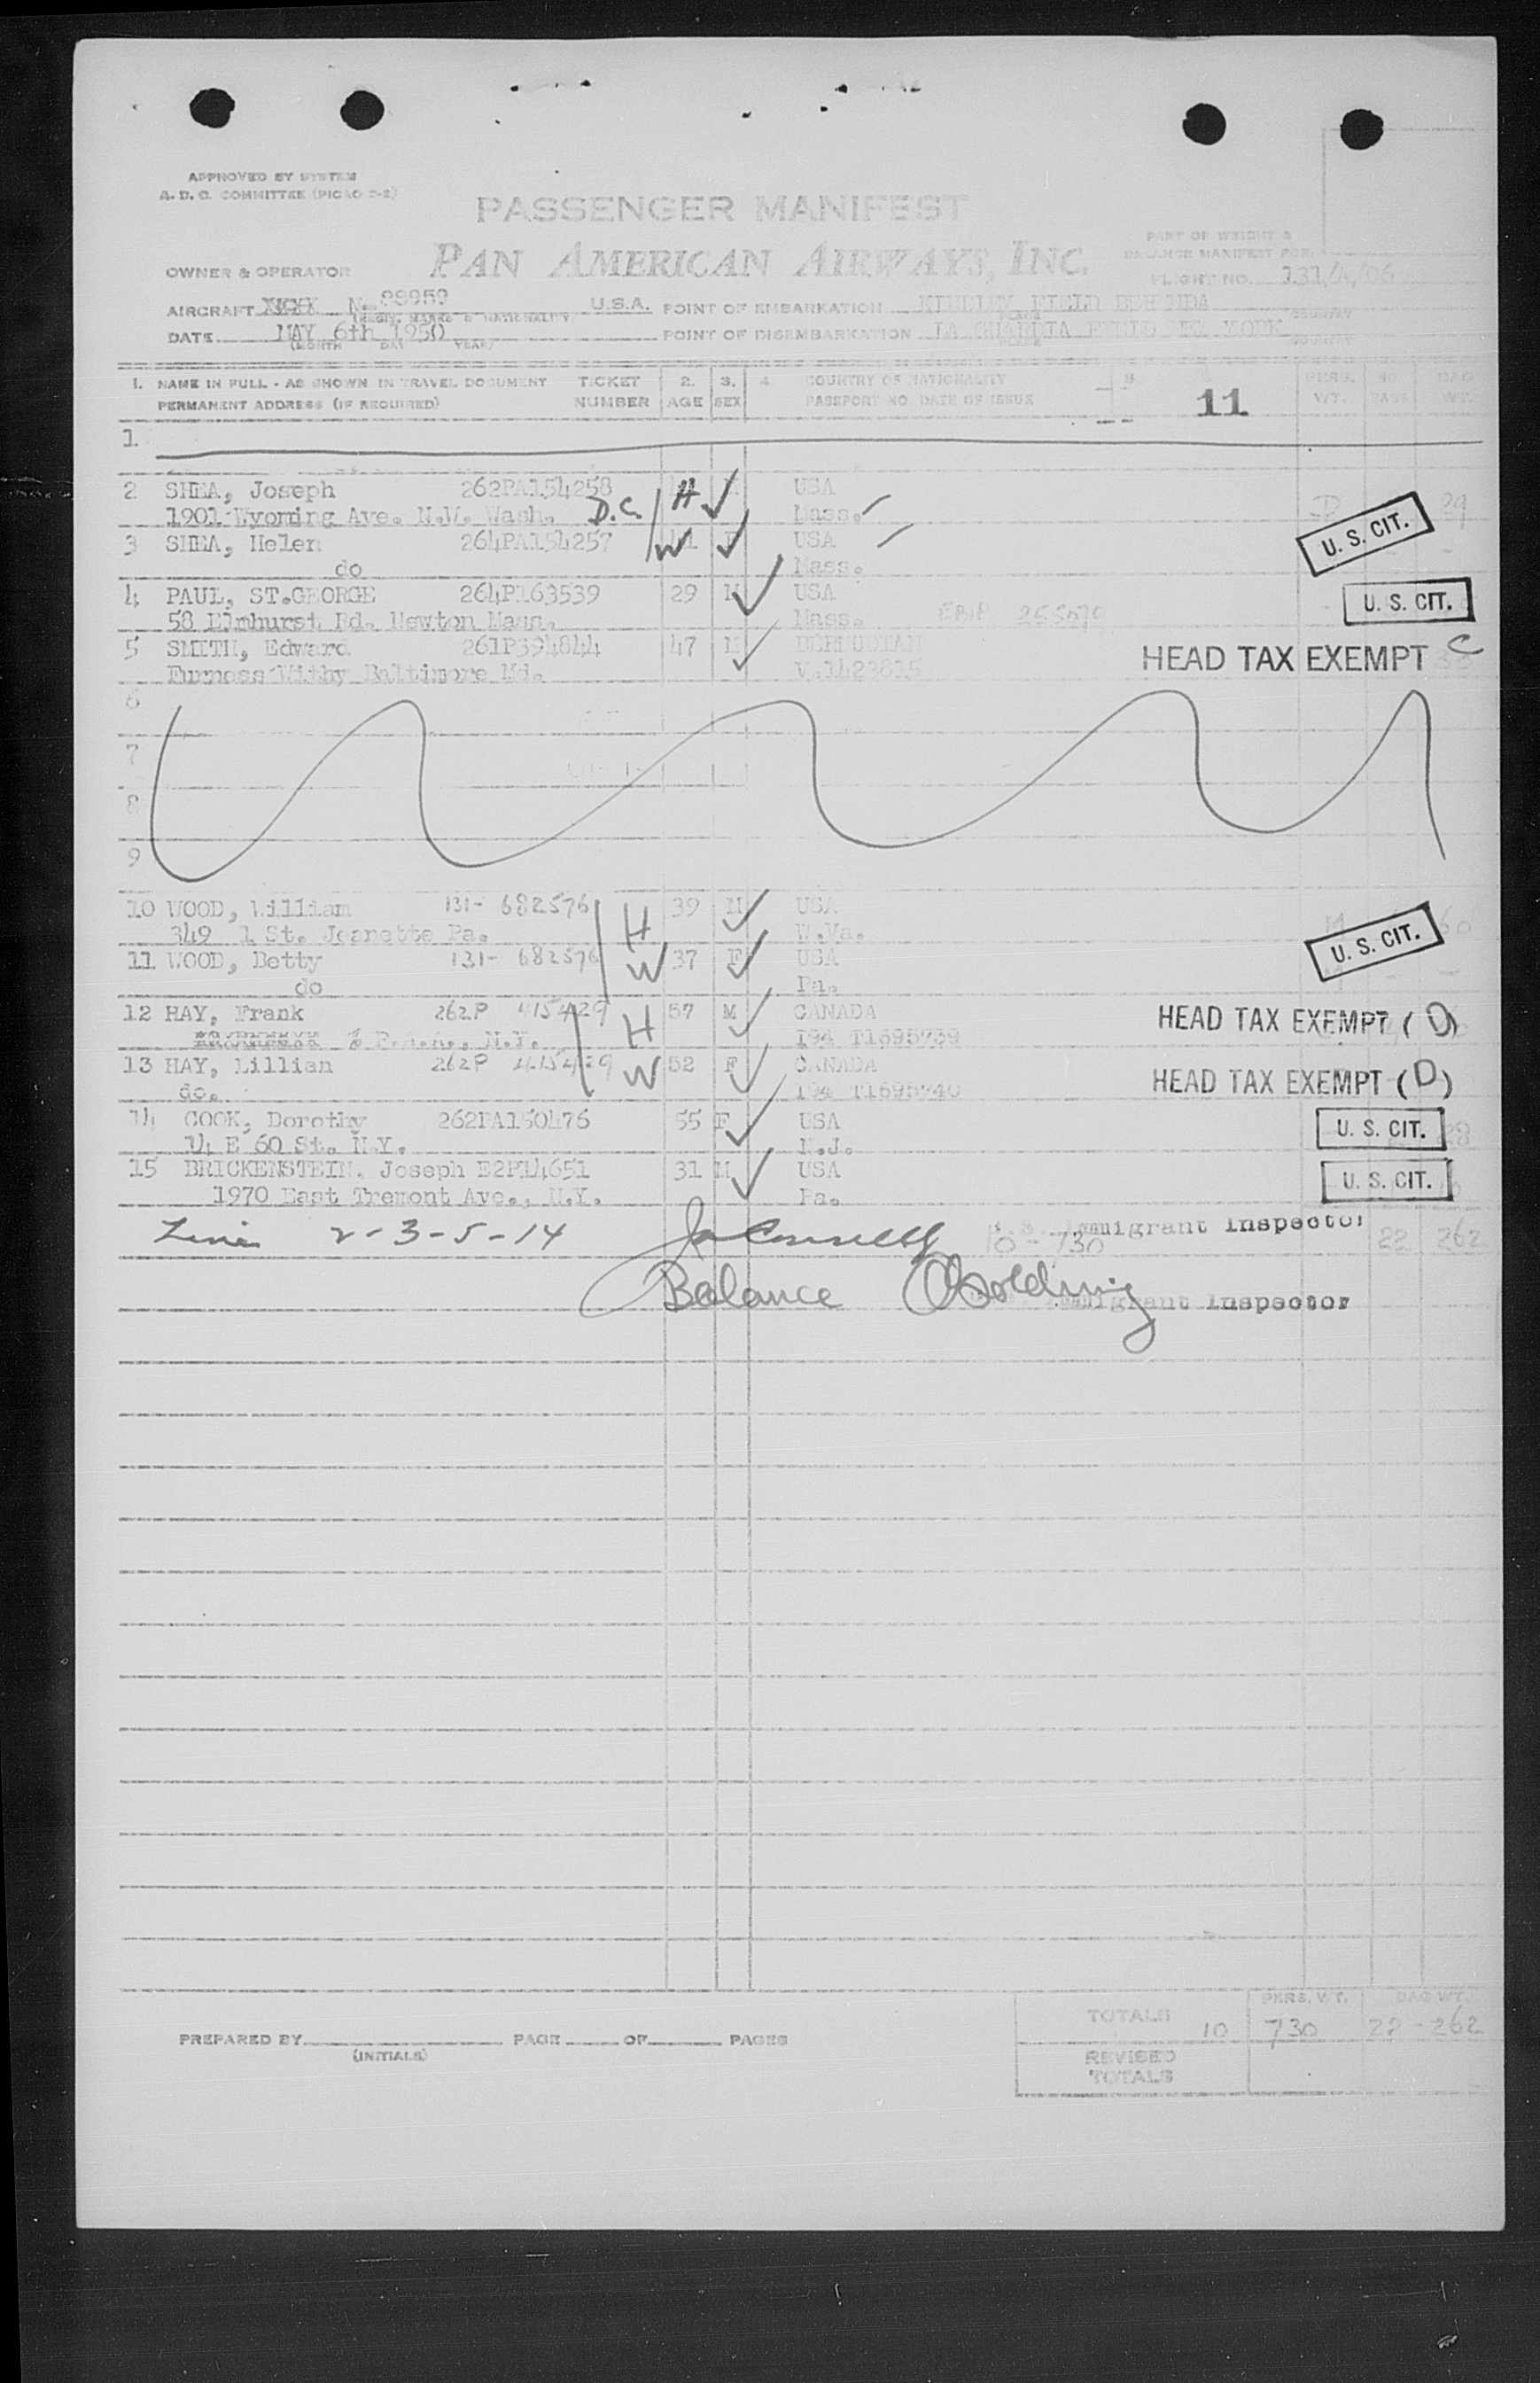 APPROVED BY SYSTEM
A. D. C. COMMITTEE (PICAO 2-2)
PASSENGER MANIFEST
PAN AMERICAN AIRWAYS, INC.
PART OF WEIGHT &
BALANCE MANIFEST FOR
FLIGHT NO. 131/4/06
OWNER & OPERATOR
AIRCRAFT N. 99959 U.S.A. POINT OF EMBARKATION KINDLEY FIELD BERMUDA
(REGIS. MARKS & NATIONALITY) PLACE COUNTRY
DATE MAY 6th 1950 POINT OF DISEMBARKATION LA GUARDIA FIELD NEW YORK
(MONTH DAY YEAR) PLACE COUNTRY
1. NAME IN FULL - AS SHOWN IN TRAVEL DOCUMENT TICKET 2. 3. 4. COUNTRY OF NATIONALITY 5 11 PERS. NO. BAG
PERMANENT ADDRESS (IF REQUIRED) NUMBER AGE SEX PASSPORT NO. DATE OF ISSUE WT. BAGS WT.
1.
2 SHEA, Joseph 262PA154258 H M USA 29
1901 Wyoming Ave. N.W. Wash. D.C. Mass.
3 SHEA, Helen 264PA154257 W F USA U. S. CIT.
do Mass.
4 PAUL, ST.GEORGE 264P163539 29 M USA U. S. CIT.
58 Elmhurst Rd. Newton Mass. Mass.
5 SMITH, Edward 261P394844 47 M BERMUDIAN HEAD TAX EXEMPT C
Furness Withy Baltimore Md. V.1423615
6
7
8
9
10 WOOD, William 131- 682576 H 39 M USA
349 1 St. Jeanette Pa. W.Va. U. S. CIT.
11 WOOD, Betty 131- 682576 W 37 F USA
do Pa.
12 HAY, Frank 262P 415429 H 57 M CANADA HEAD TAX EXEMPT (D)
N.Y. I94 T1695739
13 HAY, Lillian 262P 415429 W 52 F CANADA HEAD TAX EXEMPT (D)
do. I94 T1695740
14 COOK, Dorothy 262PA150476 55 F USA U. S. CIT.
14 E 60 St. N.Y. N.J.
15 BRICKENSTEIN, Joseph E2P14651 31 M USA U. S. CIT.
1970 East Tremont Ave., N.Y. Pa.
Lines 2-3-5-14 10 - 730 Immigrant Inspector 22 262
Balance Immigrant Inspector
TOTALS 10 PERS. WT. 730 22 - BAG WT. 262
PREPARED BY PAGE OF PAGES
(INITIALS)
REVISED
TOTALS